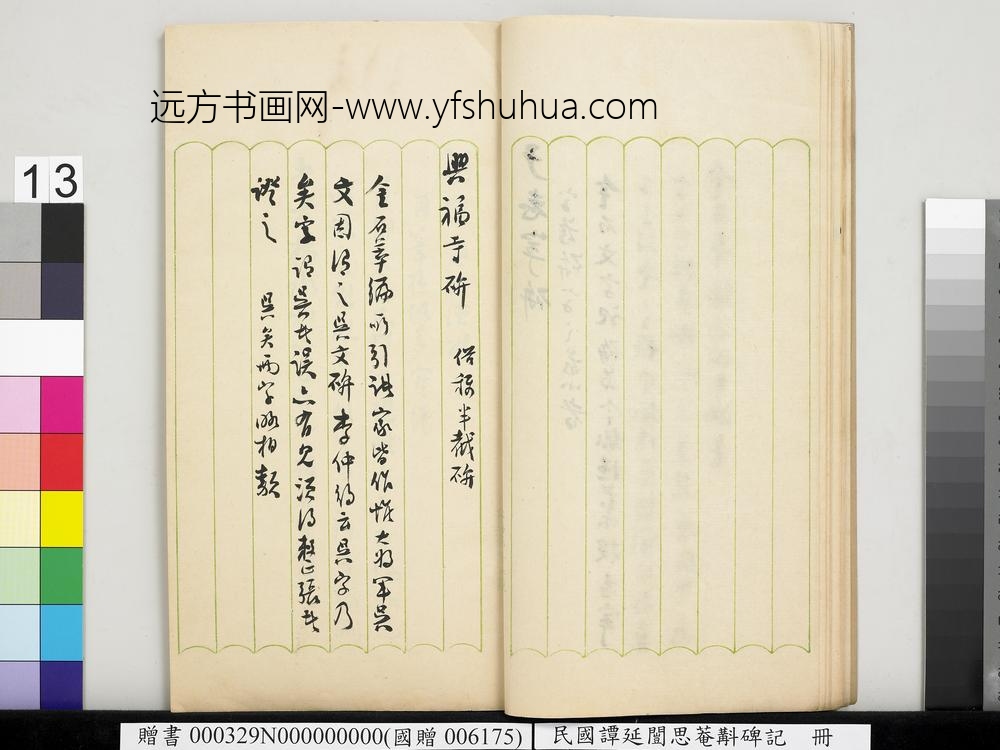 远方书画网-www.yfshuhua.com
13
興福寺碑 俗稱半截碑
金石萃編所引諸家皆作惟大將軍吳
文因謂之吳文碑李仲約云吳字乃
矣字謂吳者誤亦有見須得整張者
證之 吳矣兩字略相類
贈書 000329N000000000(國贈 006175)
民國譚延闓思菴斠碑記 冊